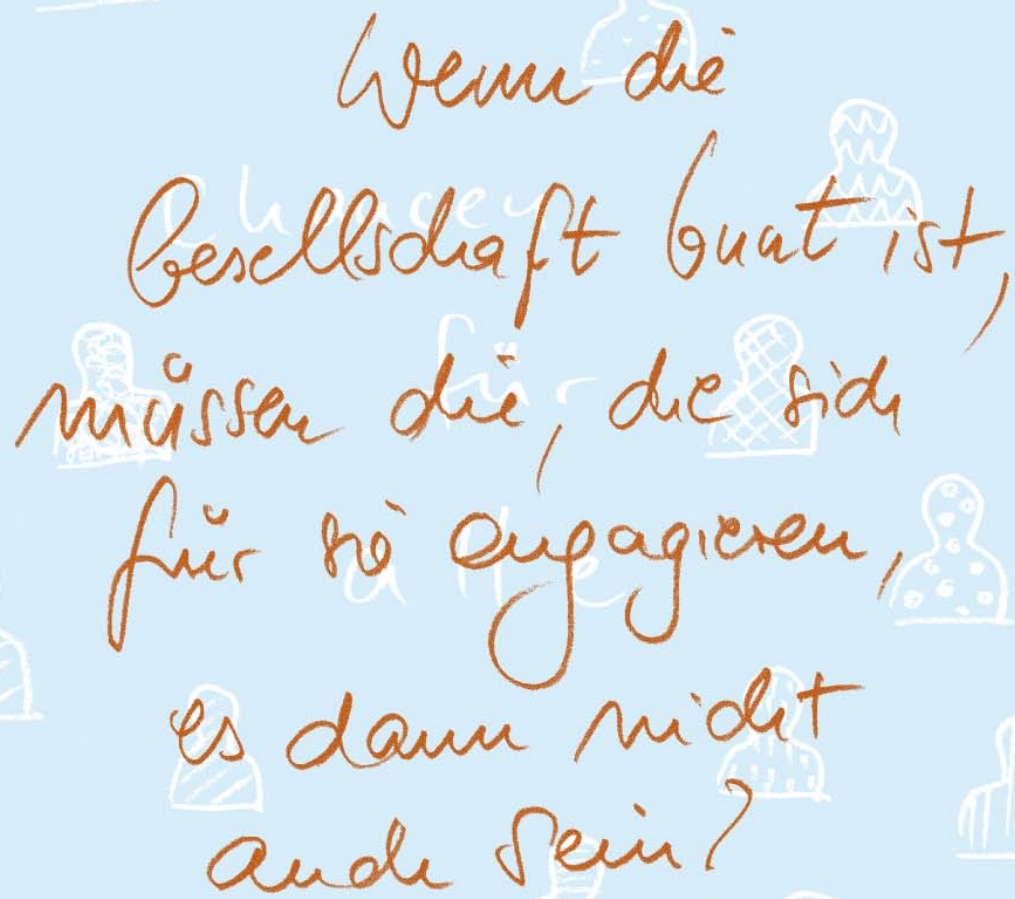 Wenn die
Gesellschaft bunt ist,
müssen die, die sich
für sie engagieren,
es dann nicht
auch sein?
Chancen
für
alle